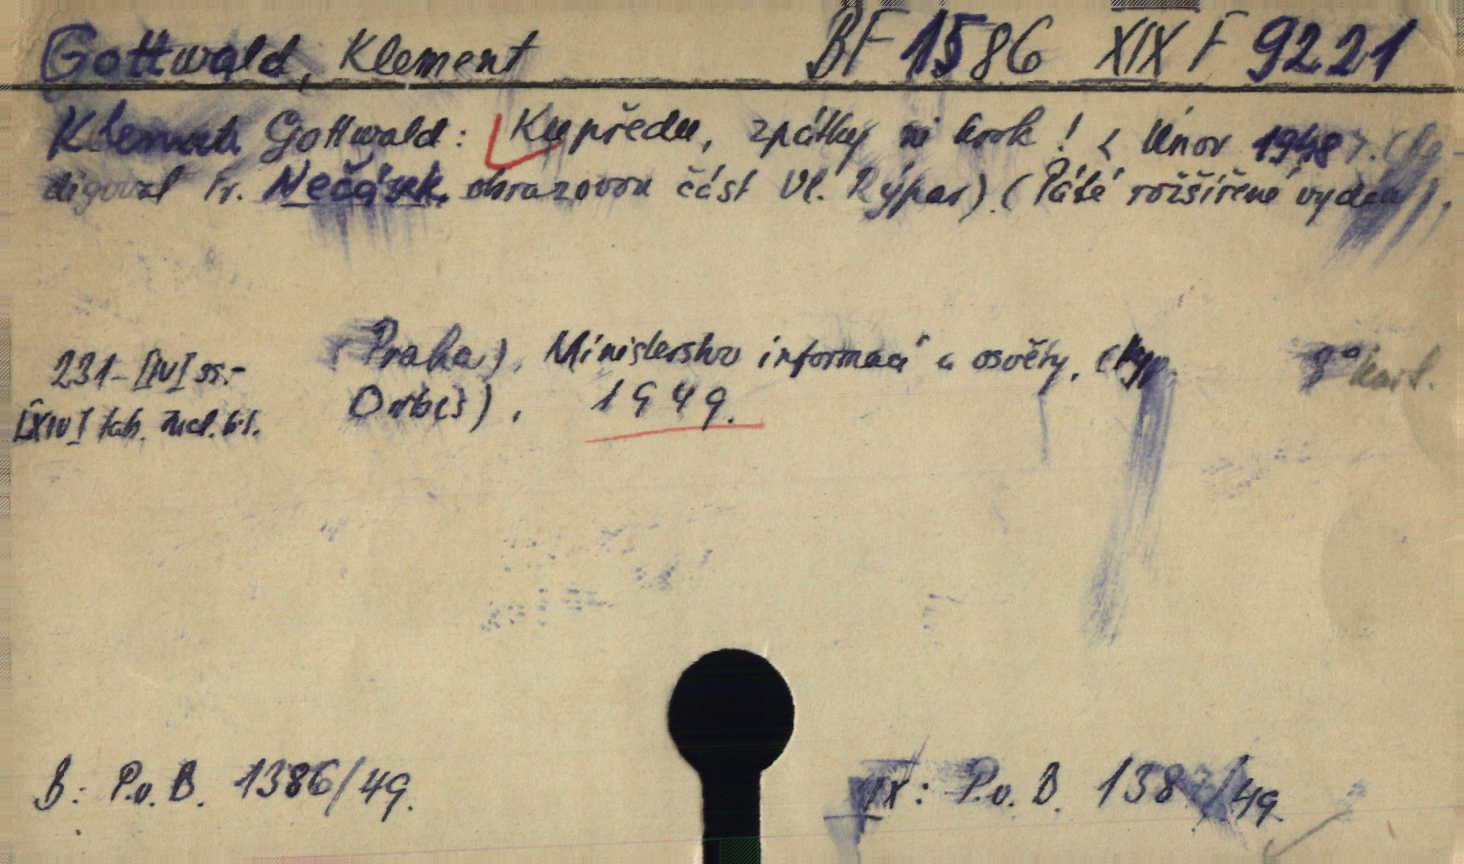 Gottwald, Klement BF 1586 XIX F 9221
Klement Gottwald: Kupředu, zpátky ni krok! < Únor 1948 >. (Re-
digoval Fr. Nečásek, obrazovou část Vl. Rýpar). (Páté rozšířené vydání).
(Praha), Ministerstvo informací a osvěty, (typ. 8° kart.
231-[IV] ss.- Orbis), 1949.
[XIV] tab. 
B: P.v.B. 1386/49. XIX: P.v.B. 1387/49